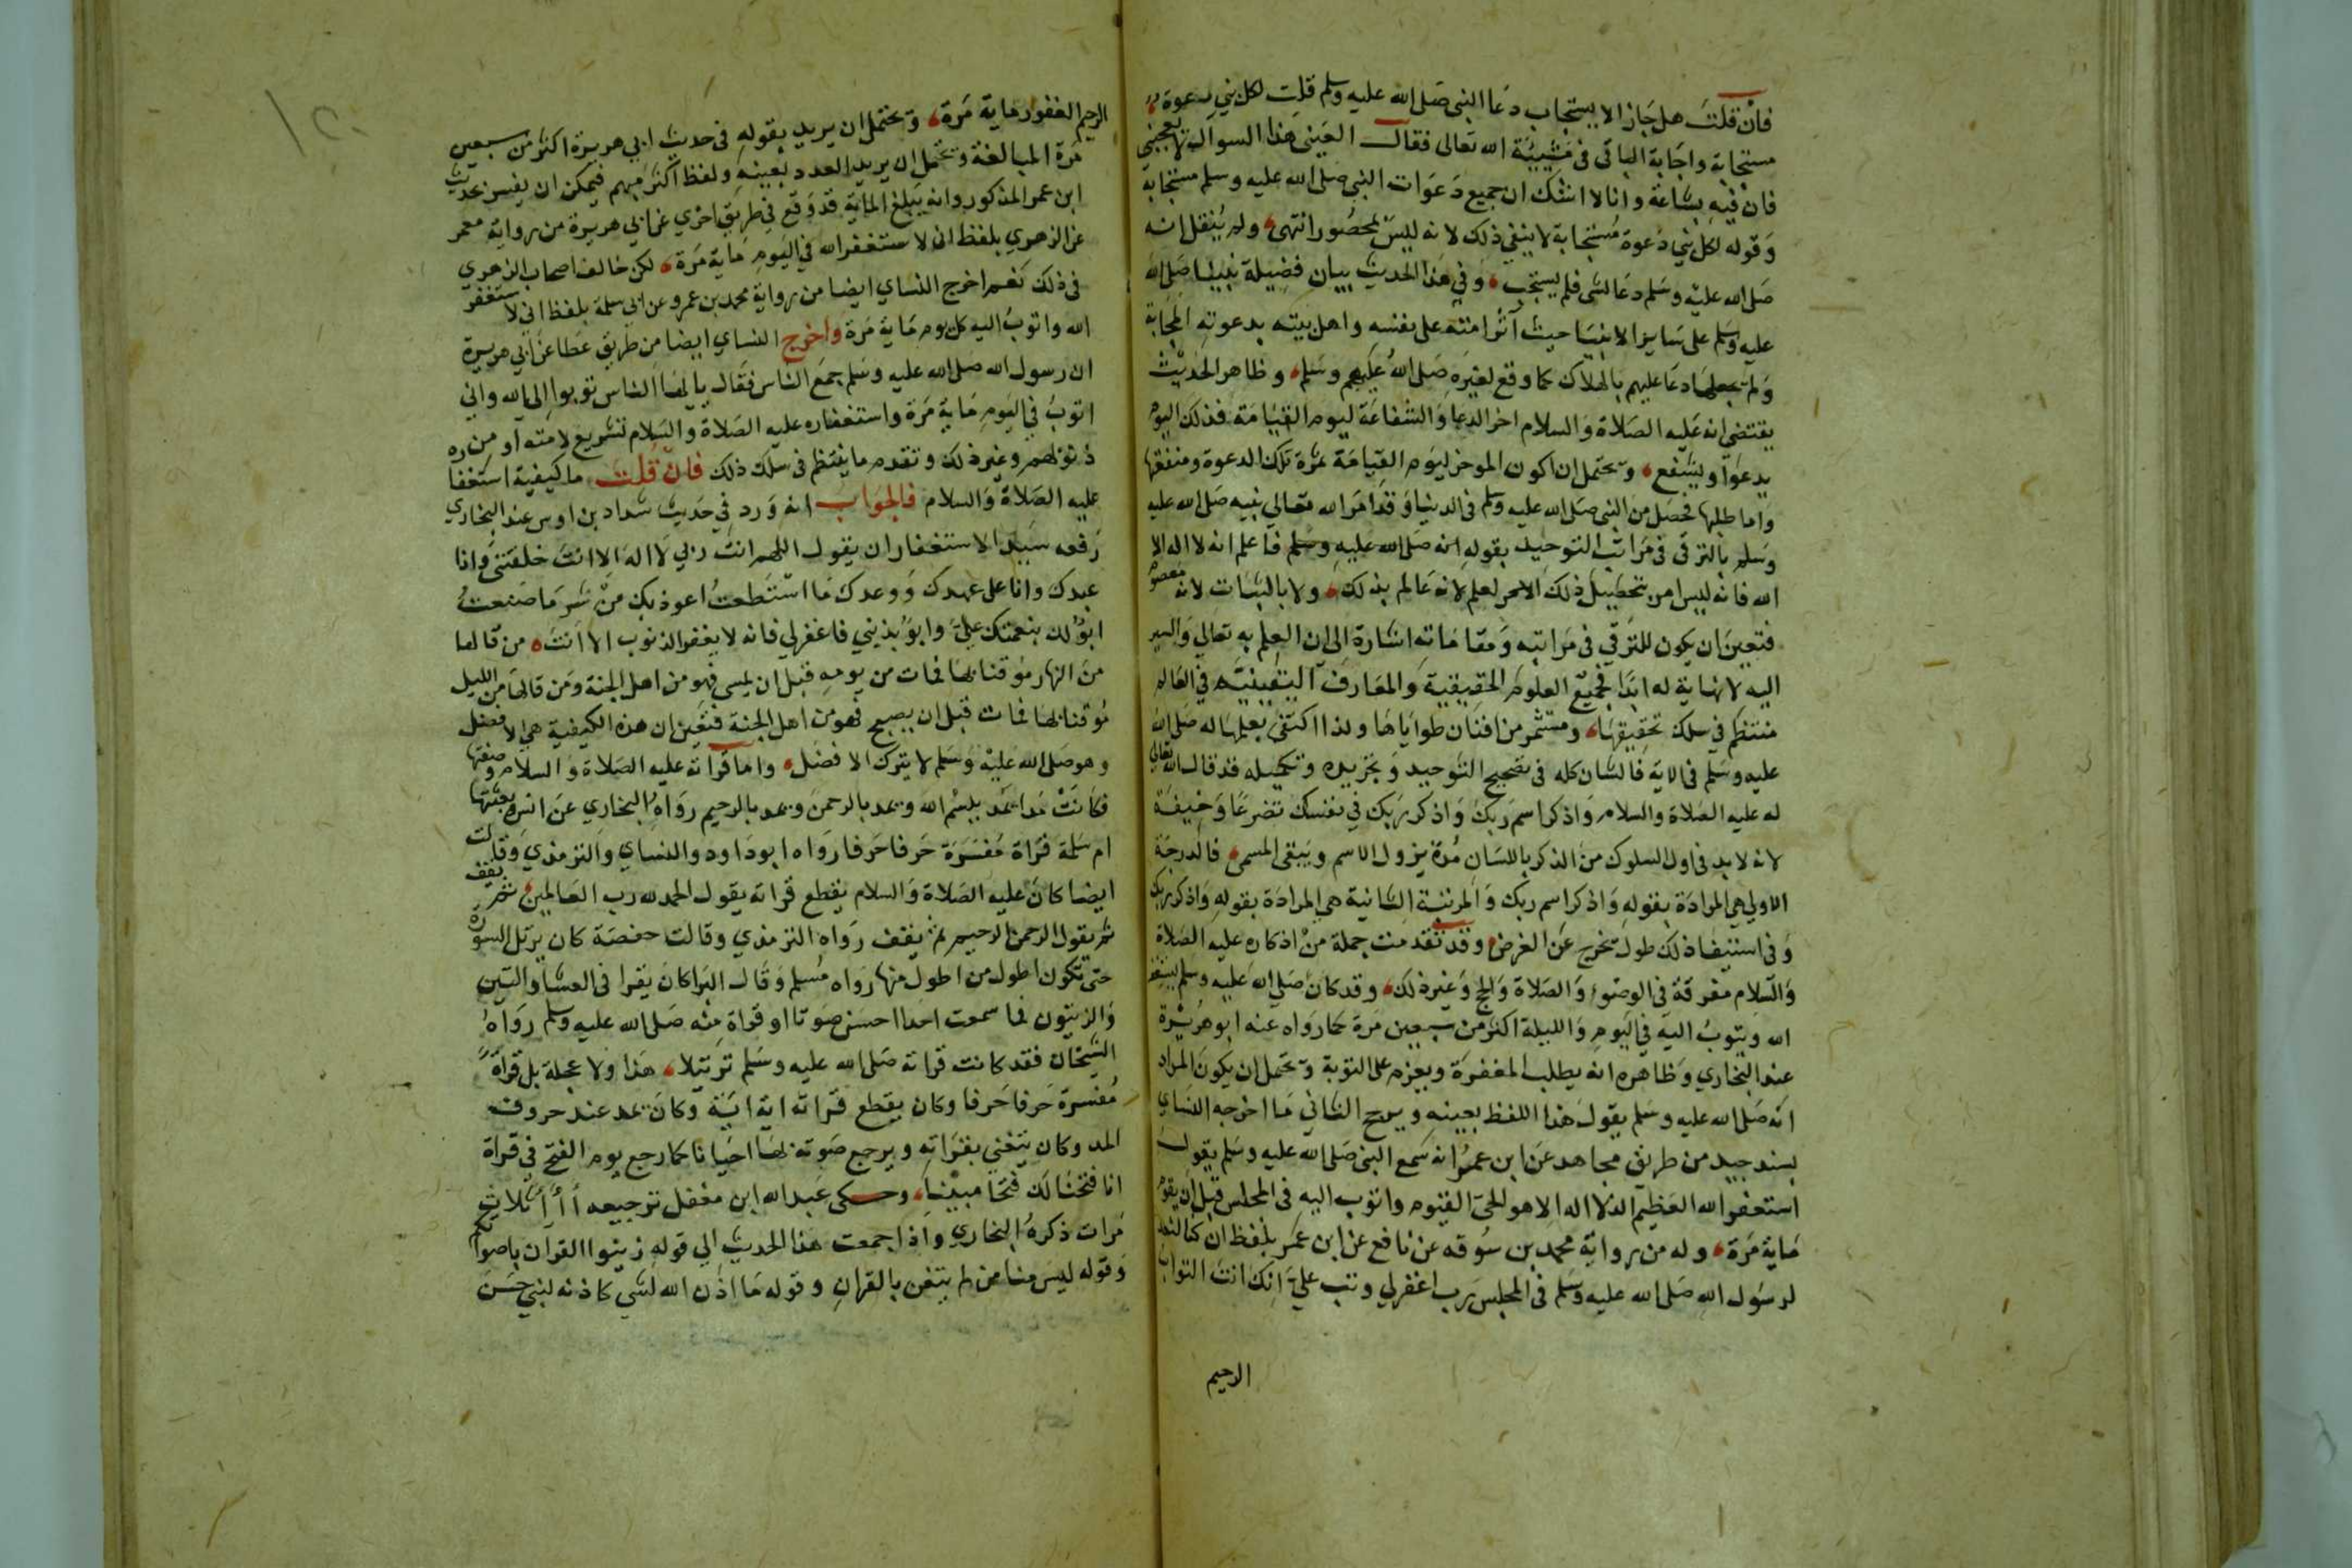 فان قلت هل جاز الا يستجاب دعا النبى صلى الله عليه وسلم قلت لكل نبي دعوة
مستجابة واجابة الباقى فى مشيئة الله تعالى فقال العينى هذا السوال لا يعجبنى
فان فيه بشاعة وانا لا اشك ان جميع دعوات النبى صلى الله عليه وسلم مستجابة
وقوله لكل نبي دعوة مستجابة لا ينفي ذلك لانه ليس بمحصور انتهى ولم ينقل انه
صلى الله عليه وسلم دعا لشى فلم يستجب وفي هذا الحديث بيان فضيلة نبينا صلى الله
عليه وسلم على ساير الانبيا حيث آثر امته على نفسه واهل بيته بدعوته المجابة
ولم يجعلها دعا عليهم بالهلاك كما وقع لغيره صلى الله عليهم وسلم وظاهر الحديث
يقتضي انه عليه الصلاة والسلام اخر الدعا والشفاعة ليوم القيامة فذلك اليوم
يدعوا ويشفع ويحتمل ان كون الموخر ليوم القيامة ثمرة تلك الدعوة ومنفعتها
واما طلبها فحصل من النبى صلى الله عليه وسلم فى الدنيا وقد امر الله تعالى نبيه صلى الله عليه
وسلم بالترقى فى مراتب التوحيد بقوله انه صلى الله عليه وسلم فاعلم انه لا اله الا
الله فانه ليس امر بتحصيل ذلك العلم لانه عالم بذلك ولا بالثبات لانه معصوم
فتعين ان يكون للترقي في مراتبه ومقاماته اشارة الى ان العلم به تعالى والسير
اليه لا نهاية له ابدا فجميع العلوم الحقيقية والمعارف اليقينية فى العالم
منتظم في سلك تحقيقها ومستثمر من افنان طواياها ولذا اكتفى بعلمها له صلى الله
عليه وسلم فى الاية فالشان كله فى تصحيح التوحيد وتجريده وتكميله قد قال الله تعالى
له عليه الصلاة والسلام واذكر اسم ربك واذكر ربك في نفسك تضرعا وخيفة
لانه لابد فى اول السلوك من الذكر باللسان مدة يزول الاسم ويبقى المسمى فالدرجة
الاولى هي المرادة بقوله واذكر اسم ربك والمرتبة الثانية هي المرادة بقوله واذكر ربك
وفى استيفا ذلك طول يخرج عن الغرض وقد تقدمت جملة من اذكاره عليه الصلاة
والسلام مفرقة فى الوضوء والصلاة والحج وغير ذلك وقد كان صلى الله عليه وسلم يستغفر
الله ويتوب اليه في اليوم والليلة اكثر من سبعين مرة كما رواه عنه ابو هريرة
عند البخاري وظاهره انه يطلب المغفرة ويعزم على التوبة ويحتمل ان يكون المراد
انه صلى الله عليه وسلم يقول هذا اللفظ بعينه ويرجح الثاني ما اخرجه النساي
بسند جيد من طريق مجاهد عن ابن عمر انه سمع النبى صلى الله عليه وسلم يقول
استغفر الله العظيم الذى لا اله الا هو الحى القيوم واتوب اليه فى المجلس قبل ان يقوم
ماية مرة وله من رواية محمد بن سوقه عن نافع عن ابن عمر بلفظ ان كنا لنعد
لرسول الله صلى الله عليه وسلم فى المجلس رب اغفرلي وتب علي انك انت التواب
الرحيم
الرحيم الغفور ماية مرة ويحتمل ان يريد بقوله فى حديث ابي هريرة اكثر من سبعين
مرة المبالغة ويحتمل ان يريد العدد بعينه ولفظ اكثر مبهم فيمكن ان يفسر بحديث
ابن عمر المذكور وانه يبلغ الماية قد وقع في طريق اخري عن ابي هريرة من رواية معمر
عن الزهري بلفظ انى لاستغفر الله في اليوم ماية مرة لكن خالف اصحاب الزهري
فى ذلك نعم اخرج النساي ايضا من رواية محمد بن عمرو عن ابي سلمة بلفظ انى لاستغفر
الله واتوب اليه كل يوم ماية مرة واخرج النساي ايضا من طريق عطا عن ابي هريرة
ان رسول الله صلى الله عليه وسلم جمع الناس فقال يا ايها الناس توبوا الى الله واني
اتوب في اليوم ماية مرة واستغفاره عليه الصلاة والسلام تشريع لامته او من
ذنوبهم وغير ذلك وتقدم ما ينتظم فى سلك ذلك فان قلت ما كيفية استغفا
عليه الصلاة والسلام فالجواب انه ورد في حديث شداد بن اوس عند البخاري
رفعه سيد الاستغفار ان يقول اللهم انت ربي لا اله الا انت خلقتني وانا
عبدك وانا على عهدك ووعدك ما استطعت اعوذ بك من شر ما صنعت
ابوء لك بنعمتك علي وابوء بذنبي فاغفرلي فانه لا يغفر الذنوب الا انت من قالها
من النهار موقنا بها فمات من يومه قبل ان يمسى فهو من اهل الجنة ومن قالها من الليل
موقنا بها فمات قبل ان يصبح فهو من اهل الجنة فتعين ان هذه الكيفية هي الافضل
وهو صلى الله عليه وسلم لا يترك الافضل واما قراته عليه الصلاة والسلام وصفتها
فكانت مدا يمد ببسم الله ويمد بالرحمن ويمد بالرحيم رواه البخاري عن انس ونعتتها
ام سلمة قراة مفسرة حرفا حرفا رواه ابو داود والنساي والترمذي وقالت
ايضا كان عليه الصلاة والسلام يقطع قراته يقول الحمد لله رب العالمين ثم يقف
ثم يقول الرحمن الرحيم ثم يقف رواه الترمذي وقالت حفصة كان يرتل السورة
حتى تكون اطول من اطول منها رواه مسلم وقال البرا كان يقرا فى العشا والتين
والزيتون فما سمعت احدا احسن صوتا او قراة منه صلى الله عليه وسلم رواه
الشيخان فقد كانت قراته صلى الله عليه وسلم ترتيلا هذا ولا عجلة بل قراة
مفسرة حرفا حرفا وكان يقطع قراته اية اية وكان يمد عند حروف
المد وكان يتغنى بقراته ويرجع صوته بها احيانا كما رجع يوم الفتح في قراة
انا فتحنا لك فتحا مبينا وحكى عبد الله ابن مغفل ترجيعه أ أ أ ثلاث
مرات ذكره البخاري واذا جمعت هذا الحديث الي قوله زينوا القران باصواتكم
وقوله ليس منا من لم يتغن بالقران وقوله ما اذن الله لشى كاذنه لنبي حسن